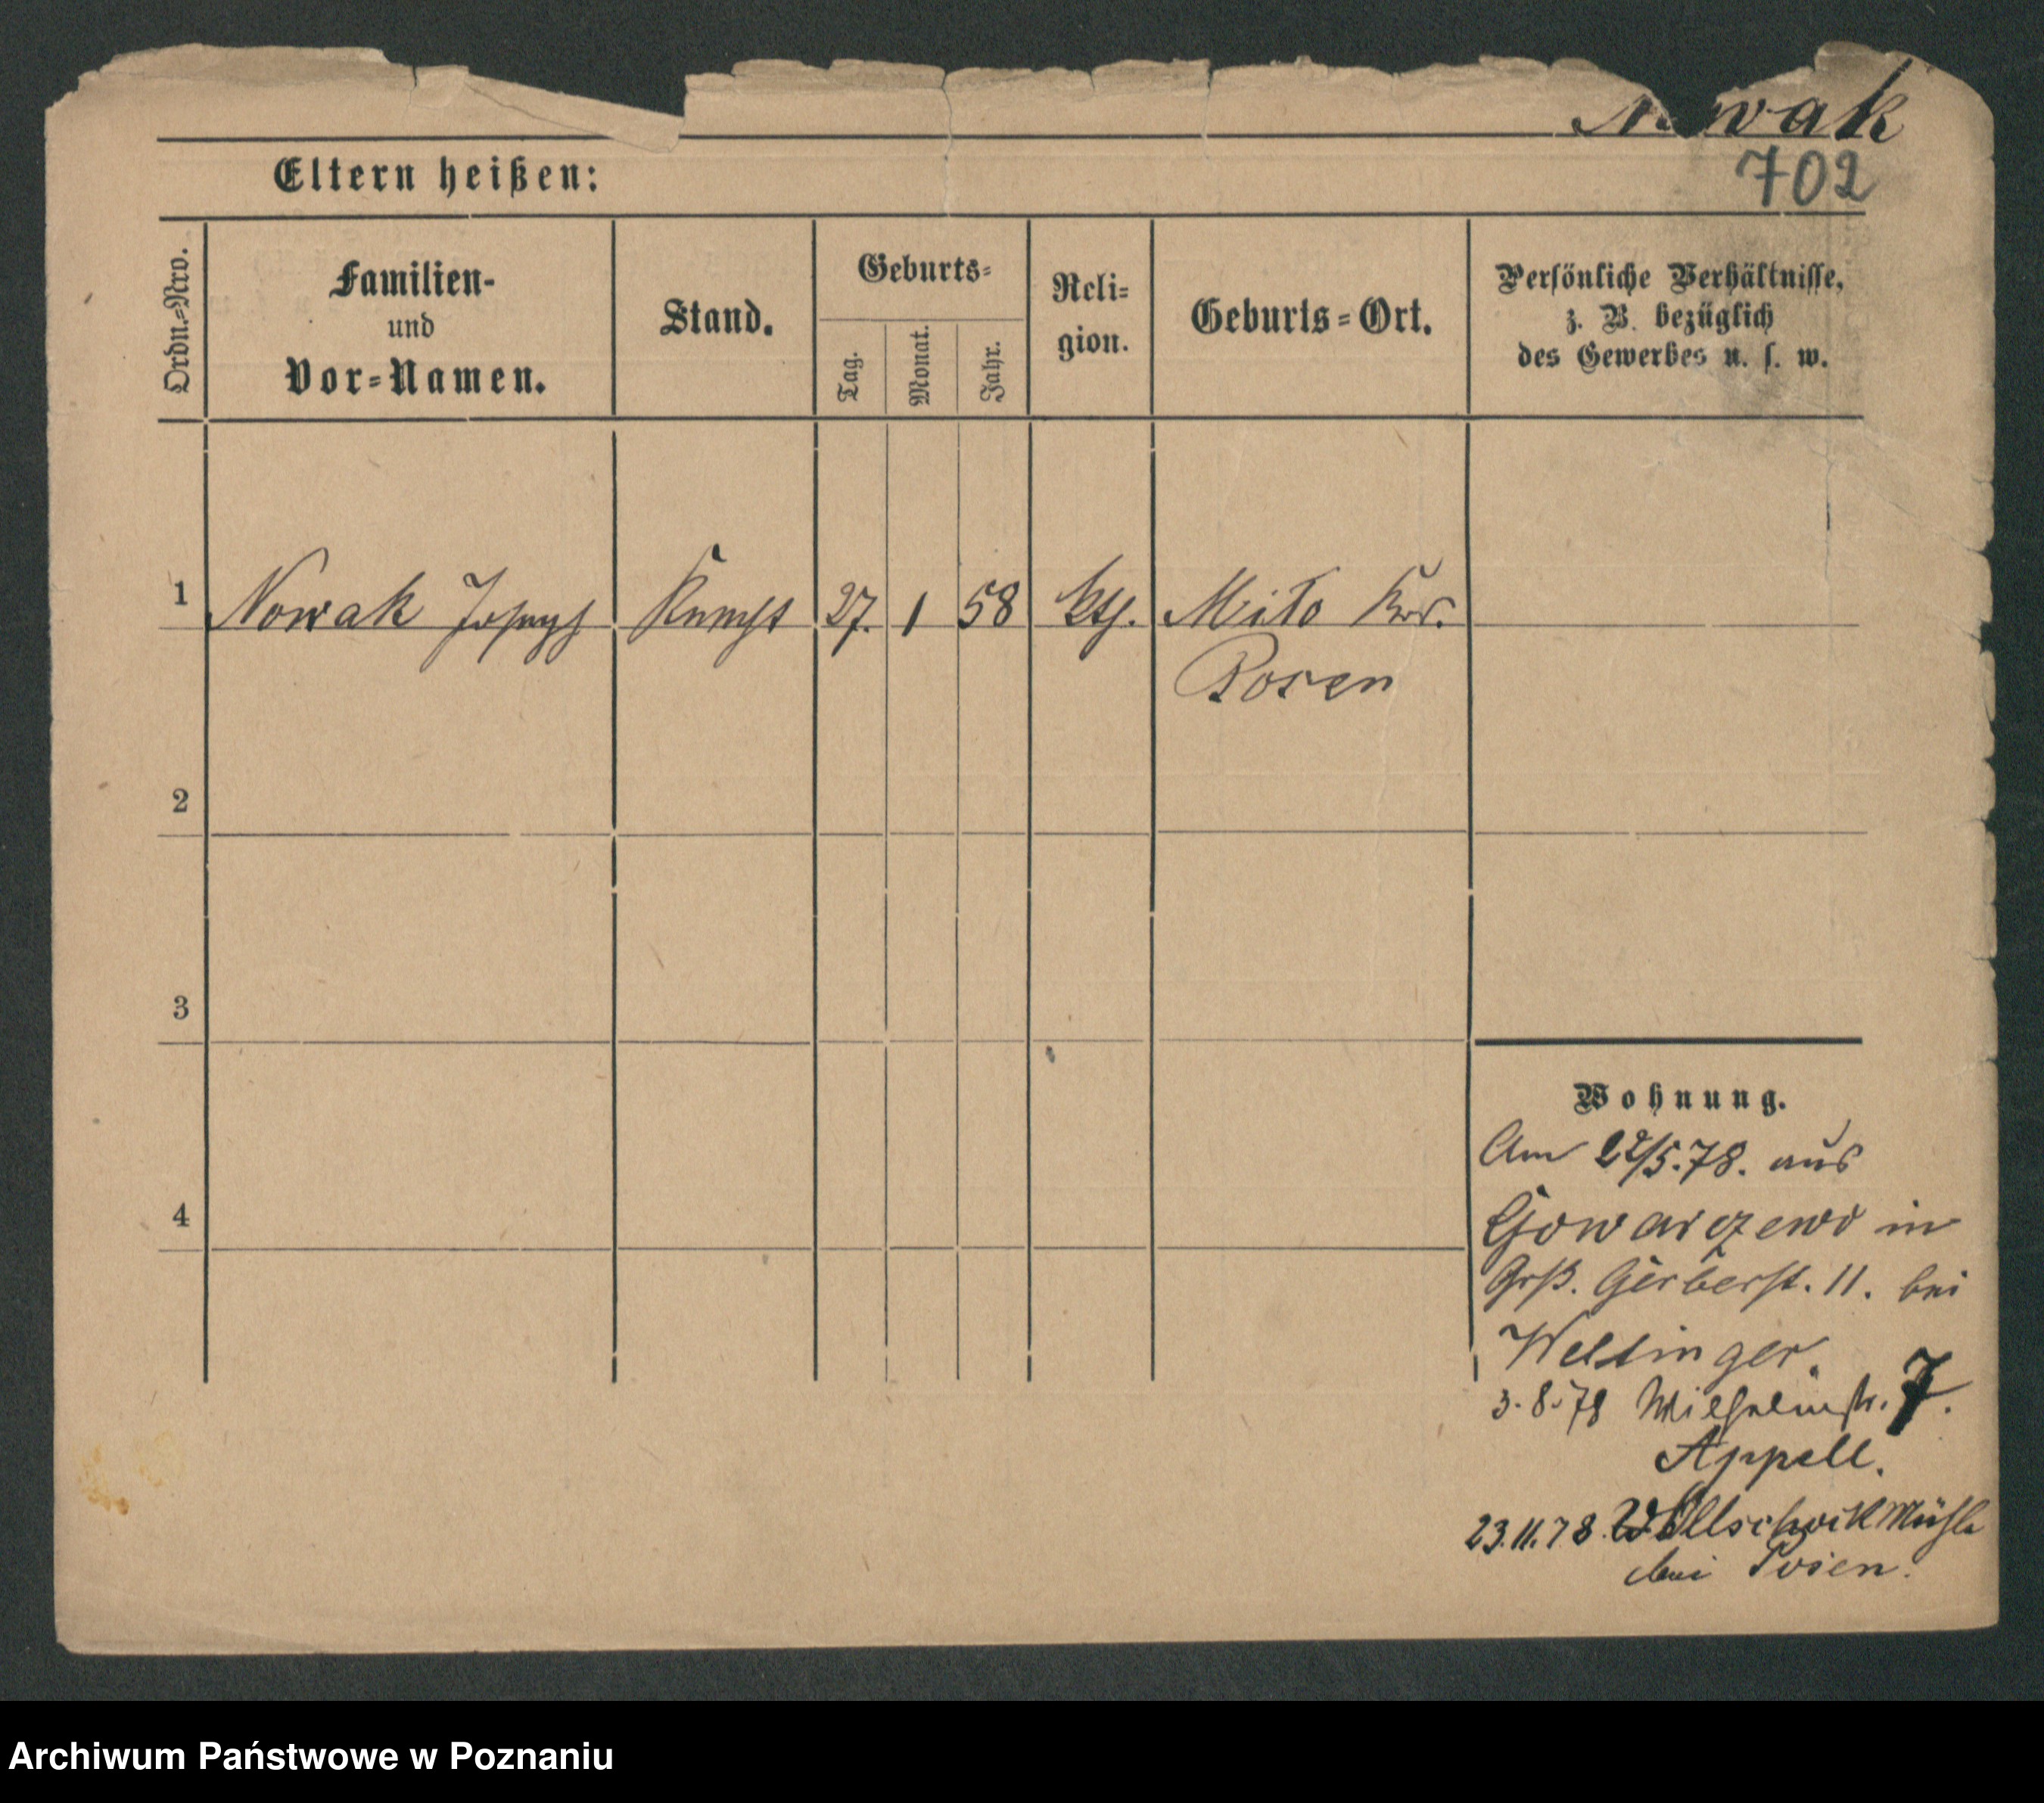 Nowak
702
Eltern heißen:
Ordn.-Nro.
Familien-
und
Vor-Namen.
Stand.
Geburts-
Tag.
Monat.
Jahr.
Reli-
gion.
Geburts-Ort.
Persönliche Verhältnisse,
z. B. bezüglich
des Gewerbes u. s. w.
1 Nowak Joseph Knecht 27. 1 58 kth. Miło Krs.
Posen
2
3
4
Wohnung.
Am 22/5.78. aus
Gowarzewo in
Grß. Gerberst. 11. bei
Weltinger.
3.8.78 Wilhelmstr. 7.
Appell.
23.11.78. Mühle
bei Posen.
Archiwum Państwowe w Poznaniu